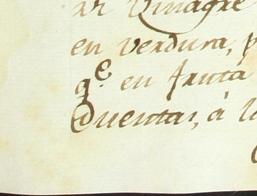 ar Vinagre
en verdura, p
qe. en fruta
Cuentas, à l